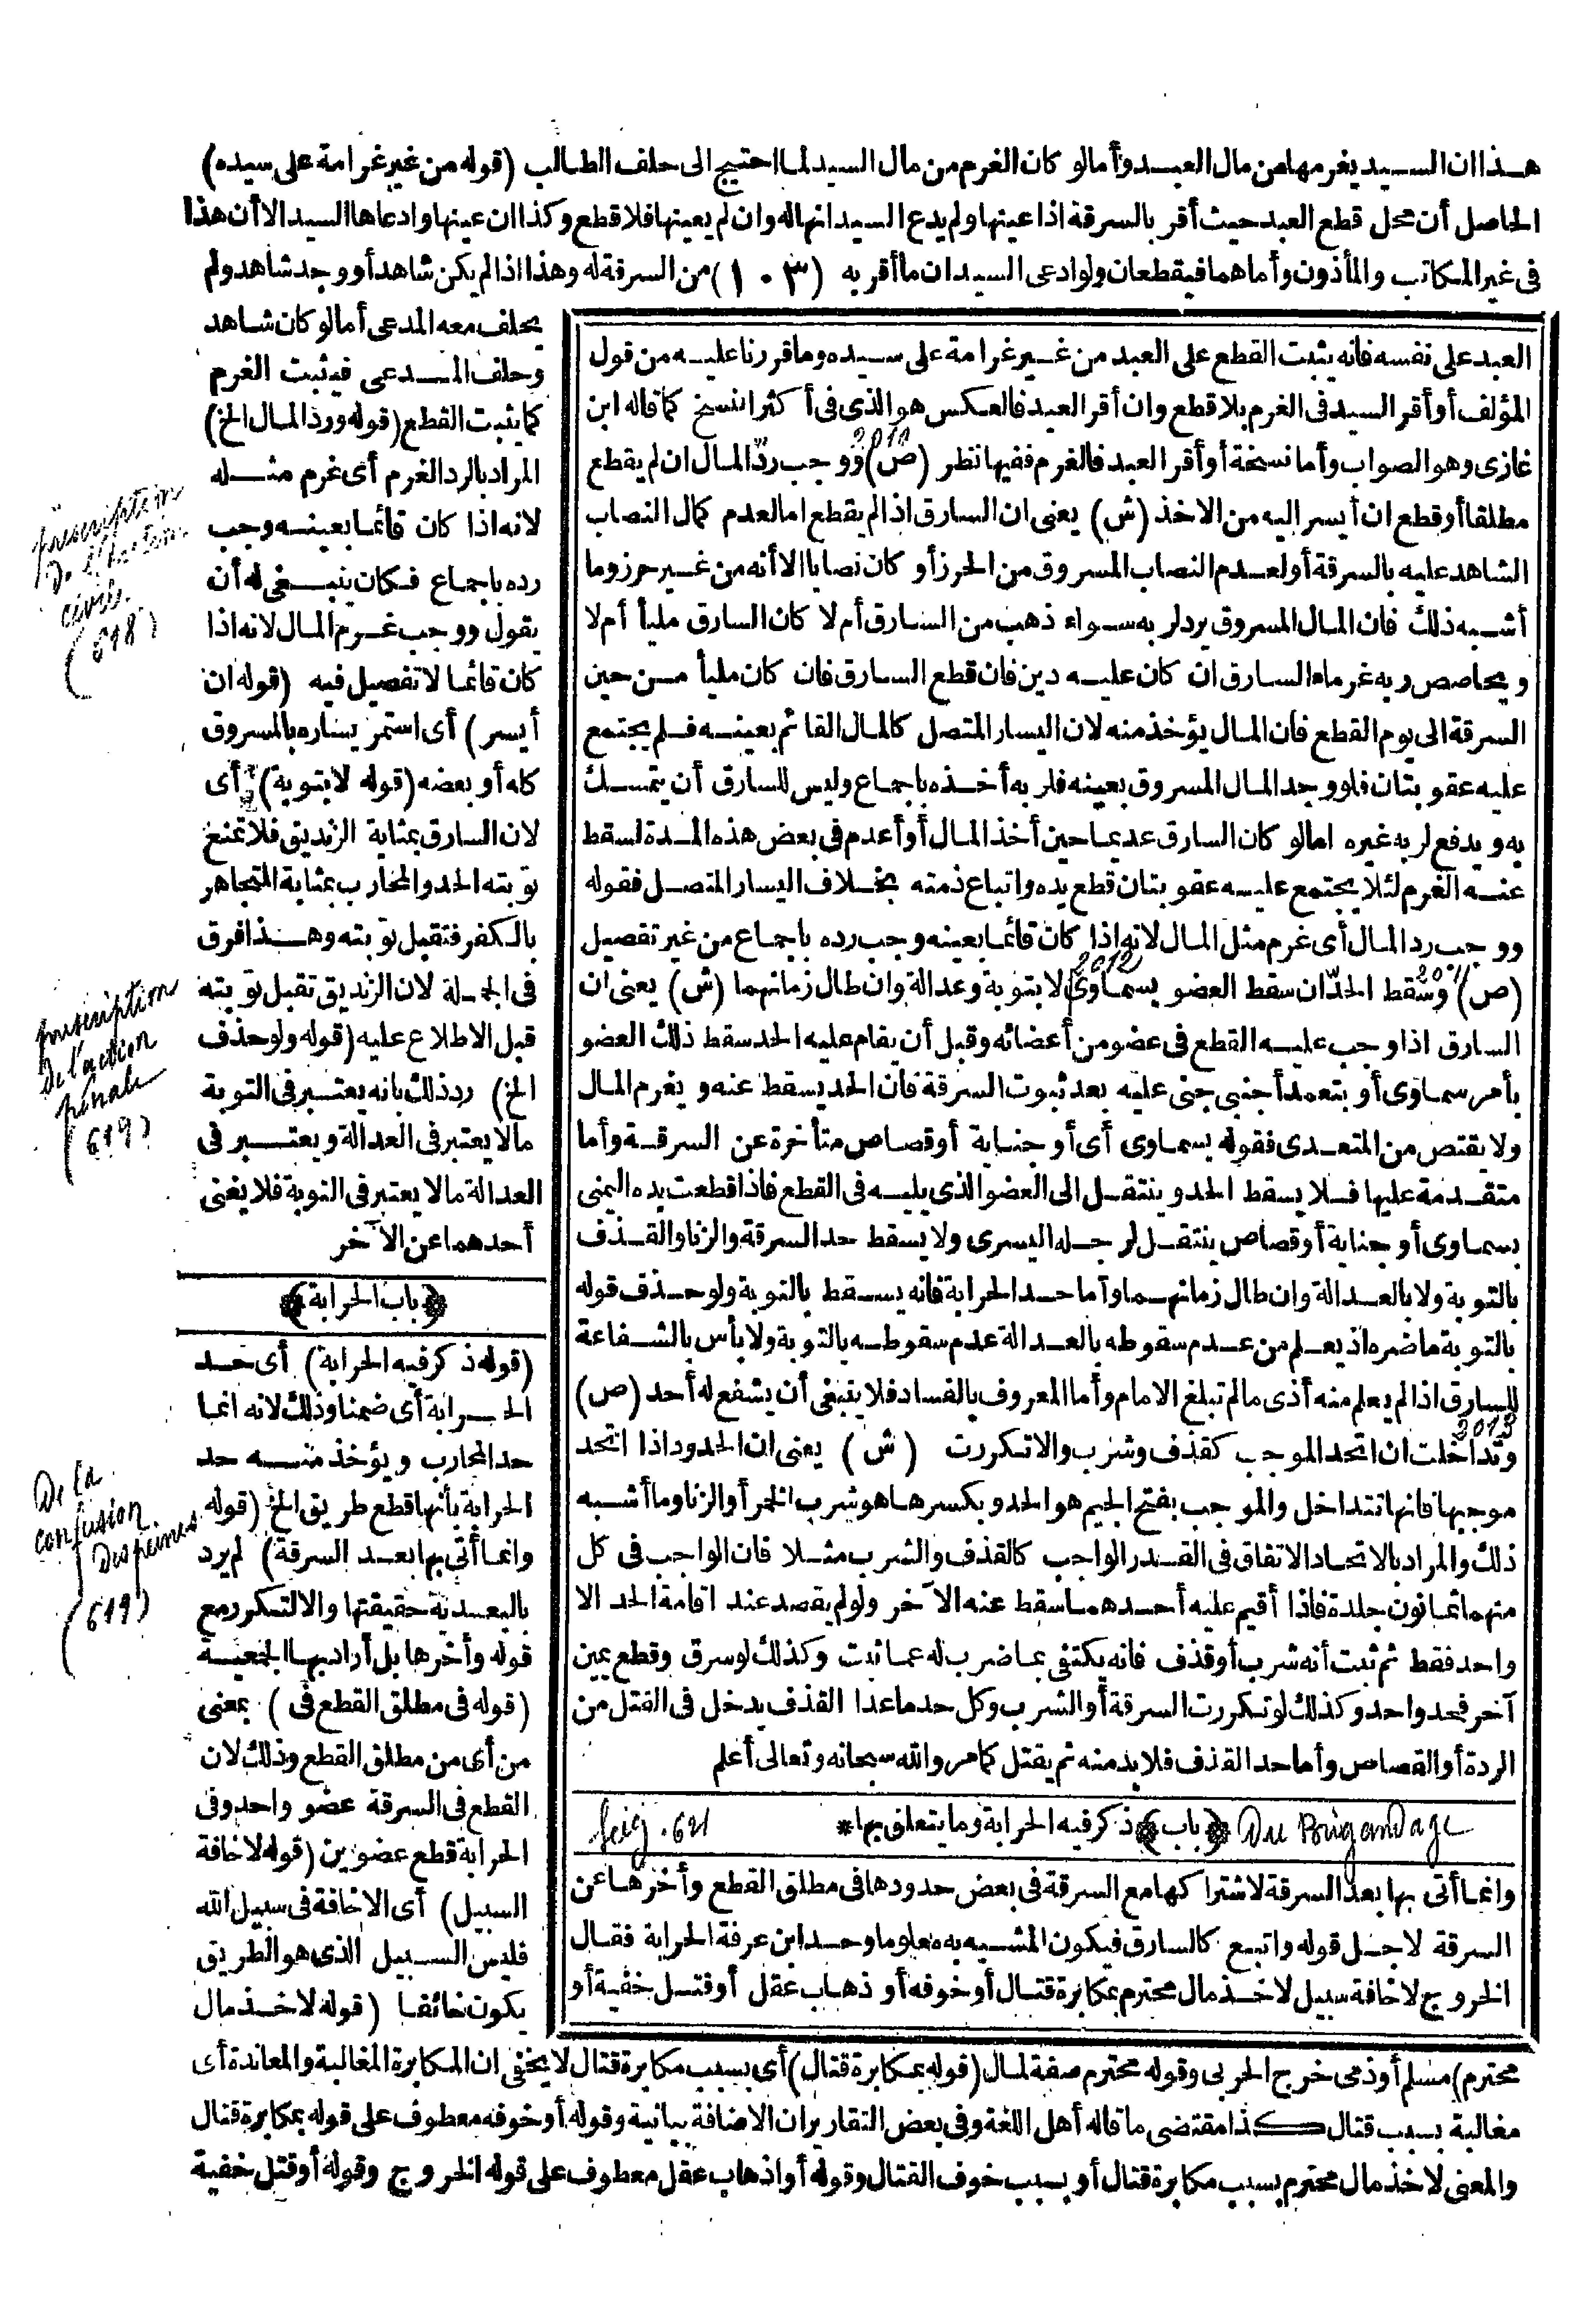 هذا ان السيد يغرمها من مال العبد وأما لو كان الغرم من مال السيد لما احتيج الى حلف الطالب (قوله من غير غرامة على سيده)
الحاصل أن محل قطع العبد حيث أقر بالسرقة اذا عينها ولم يدع السيد انها له وان لم يعينها فلا قطع وكذا ان عينها وادعاها السيد الا أن هذا
فى غير المكاتب والمأذون وأما هما فيقطعان ولو ادعى السيد ان ما أقر به (١٠٣) من السرقة له وهذا اذا لم يكن شاهد أو وجد شاهد ولم
يحلف معه المدعى أما لو كان شاهد
وحلف المدعى فيثبت الغرم
كما يثبت القطع (قوله ورد المال الخ)
المراد بالرد الغرم أى غرم مثله
لانه اذا كان قائما بعينه وجب
رده باجماع فكان ينبغى له أن
يقول ووجب غرم المال لانه اذا
كان قائما لا تفصيل فيه (قوله ان
أيسر) أى استمر يساره بالمسروق
كله أو بعضه (قوله لا بتوبة) أى
لان السارق بمثابة الزنديق فلا تمنع
توبته الحد والمحارب بمثابة المتجاهر
بالكفر فتقبل توبته وهذا فرق
فى الجملة لان الزنديق تقبل توبته
قبل الاطلاع عليه (قوله ولو حذف
الخ) رد ذلك بانه يعتبر فى التوبة
مالا يعتبر فى العدالة ويعتبر فى
العدالة مالا يعتبر فى التوبة فلا يغنى
أحدهما عن الآخر
﴿باب الحرابة﴾
(قوله ذكر فيه الحرابة) أى حد
الحرابة أى ضمنا وذلك لانه انما
حد المحارب ويؤخذ منه حد
الحرابة بأنها قطع طريق الخ (قوله
وانما أتى بها بعد السرقة) لم يرد
بالبعدية حقيقتها والا لتكرر مع
قوله وأخرها بل أراد بها الجمعية
(قوله فى مطلق القطع فى) بمعنى
من أى من مطلق القطع وذلك لان
القطع فى السرقة عضو واحد وفى
الحرابة قطع عضوين (قوله لاخافة
السبيل) أى الاخافة فى سبيل الله
فليس السبيل الذى هو الطريق
يكون خائفا (قوله لاخذ مال
العبد على نفسه فانه يثبت القطع على العبد من غير غرامة على سيده وما قررنا عليه من قول
المؤلف أو أقر السيد فى الغرم بلا قطع وان أقر العبد فالعكس هو الذى فى أكثر النسخ كما قاله ابن
غازى وهو الصواب وأما نسخة أو أقر العبد فالغرم ففيها نظر (ص) ووجب ردّ المال ان لم يقطع
2011
مطلقا أو قطع ان أيسر اليه من الاخذ (ش) يعنى ان السارق اذا لم يقطع اما لعدم كمال النصاب
الشاهد عليه بالسرقة أو لعدم النصاب المسروق من الحرز أو كان نصابا الا أنه من غير حرز وما
أشبه ذلك فان المال المسروق يرد لربه سواء ذهب من السارق أم لا كان السارق مليأ أم لا
ويحاصص ربه غرماء السارق ان كان عليه دين فان قطع السارق فان كان مليأ من حين
السرقة الى يوم القطع فان المال يؤخذ منه لان اليسار المتصل كالمال القائم بعينه فلم يجتمع
عليه عقوبتان فلو وجد المال المسروق بعينه فلربه أخذه باجماع وليس للسارق أن يتمسك
به ويدفع لربه غيره اما لو كان السارق عديما حين أخذ المال أو أعدم فى بعض هذه المدة لسقط
عنه الغرم لئلا يجتمع عليه عقوبتان قطع يده واتباع ذمته بخلاف اليسار المتصل فقوله
ووجب رد المال أى غرم مثل المال لانه اذا كان قائما بعينه وجب رده باجماع من غير تفصيل
(ص) وسقط الحدّ ان سقط العضو بسماوى لا بتوبة وعدالة وان طال زمانهما (ش) يعنى ان
2012
السارق اذا وجب عليه القطع فى عضو من أعضائه وقبل أن يقام عليه الحد سقط ذلك العضو
بأمر سماوى أو بتعمد أجنبى جنى عليه بعد ثبوت السرقة فان الحد يسقط عنه ويغرم المال
ولا يقتص من المتعدى فقوله بسماوى أى أو جناية أو قصاص متأخرة عن السرقة وأما
متقدمة عليها فلا يسقط الحد وينتقل الى العضو الذى يليه فى القطع فاذا قطعت يده اليمنى
بسماوى أو جناية أو قصاص ينتقل لرجله اليسرى ولا يسقط حد السرقة والزنا والقذف
بالتوبة ولا بالعدالة وان طال زمانهما وأما حد الحرابة فانه يسقط بالتوبة ولو حذف قوله
بالتوبة ما ضره اذ يعلم من عدم سقوطه بالعدالة عدم سقوطه بالتوبة ولا بأس بالشفاعة
للسارق اذا لم يعلم منه أذى مالم تبلغ الامام وأما المعروف بالفساد فلا ينبغى أن يشفع له أحد (ص)
2013
وتداخلت ان اتحد الموجب كقذف وشرب والاتكررت (ش) يعنى ان الحدود اذا اتحد
موجبها فانها تتداخل والموجب بفتح الجيم هو الحد وبكسرها هو شرب الخمر أو الزنا وما أشبه
ذلك والمراد بالاتحاد الاتفاق فى القدر الواجب كالقذف والشرب مثلا فان الواجب فى كل
منهما ثمانون جلدة فاذا أقيم عليه أحدهما سقط عنه الآخر ولو لم يقصد عند اقامة الحد الا
واحد فقط ثم ثبت أنه شرب أو قذف فانه يكتفى بما ضرب له عما ثبت وكذلك لو سرق وقطع يمين
آخر فحد واحد وكذلك لو تكررت السرقة أو الشرب وكل حد ما عدا القذف يدخل فى القتل من
الردة أو القصاص وأما حد القذف فلا بد منه ثم يقتل كما مر والله سبحانه وتعالى أعلم
Du Brigandage ﴿باب﴾ ذكر فيه الحرابة وما يتعلق بها* Seig. 621
وانما أتى بها بعد السرقة لاشتراكها مع السرقة فى بعض حدودها فى مطلق القطع وأخرها عن
السرقة لاجل قوله واتبع كالسارق فيكون المشبه به معلوما وحد ابن عرفة الحرابة فقال
الخروج لاخافة سبيل لاخذ مال محترم بمكابرة قتال أو خوفه أو ذهاب عقل أو قتل خفية أو
محترم) مسلم أو ذمى خرج الحربى وقوله محترم صفة لمال (قوله بمكابرة قتال) أى بسبب مكابرة قتال لا يخفى ان المكابرة المغالبة والمعاندة أى
مغالبة بسبب قتال كذا مقتضى ما قاله أهل اللغة وفى بعض التقارير ان الاضافة بيانية وقوله أو خوفه معطوف على قوله بمكابرة قتال
والمعنى لاخذ مال محترم بسبب مكابرة قتال أو بسبب خوف القتال وقوله أو اذهاب عقل معطوف على قوله الخروج وقوله أو قتل خفية
prescription
De l'action
civile
(618)
prescription
De l'action
pénale
(619)
De la
confusion
Des peines
(619)